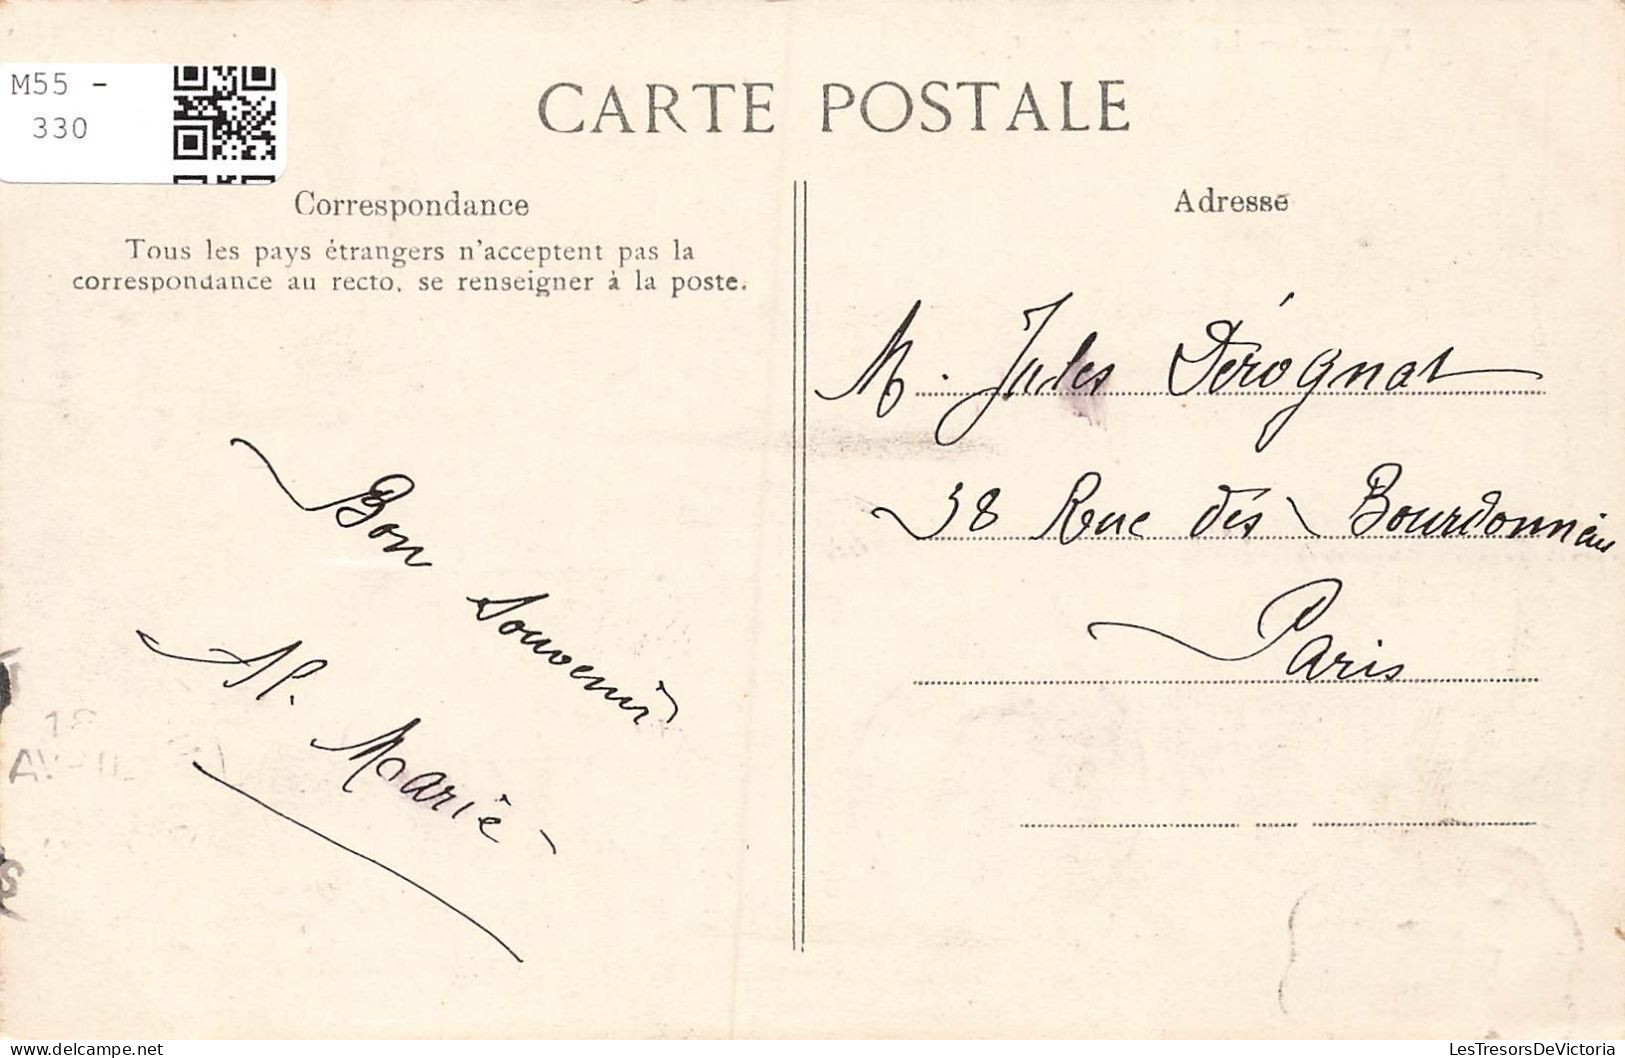 M55 -
330
CARTE POSTALE
Correspondance
Tous les pays étrangers n'acceptent pas la
correspondance au recto, se renseigner à la poste.
Bon souvenir
Al. Marie
Adresse
M. Jules Dérognat
38 Rue des Bourdonnais
Paris
18
LesTresorsDeVictoria